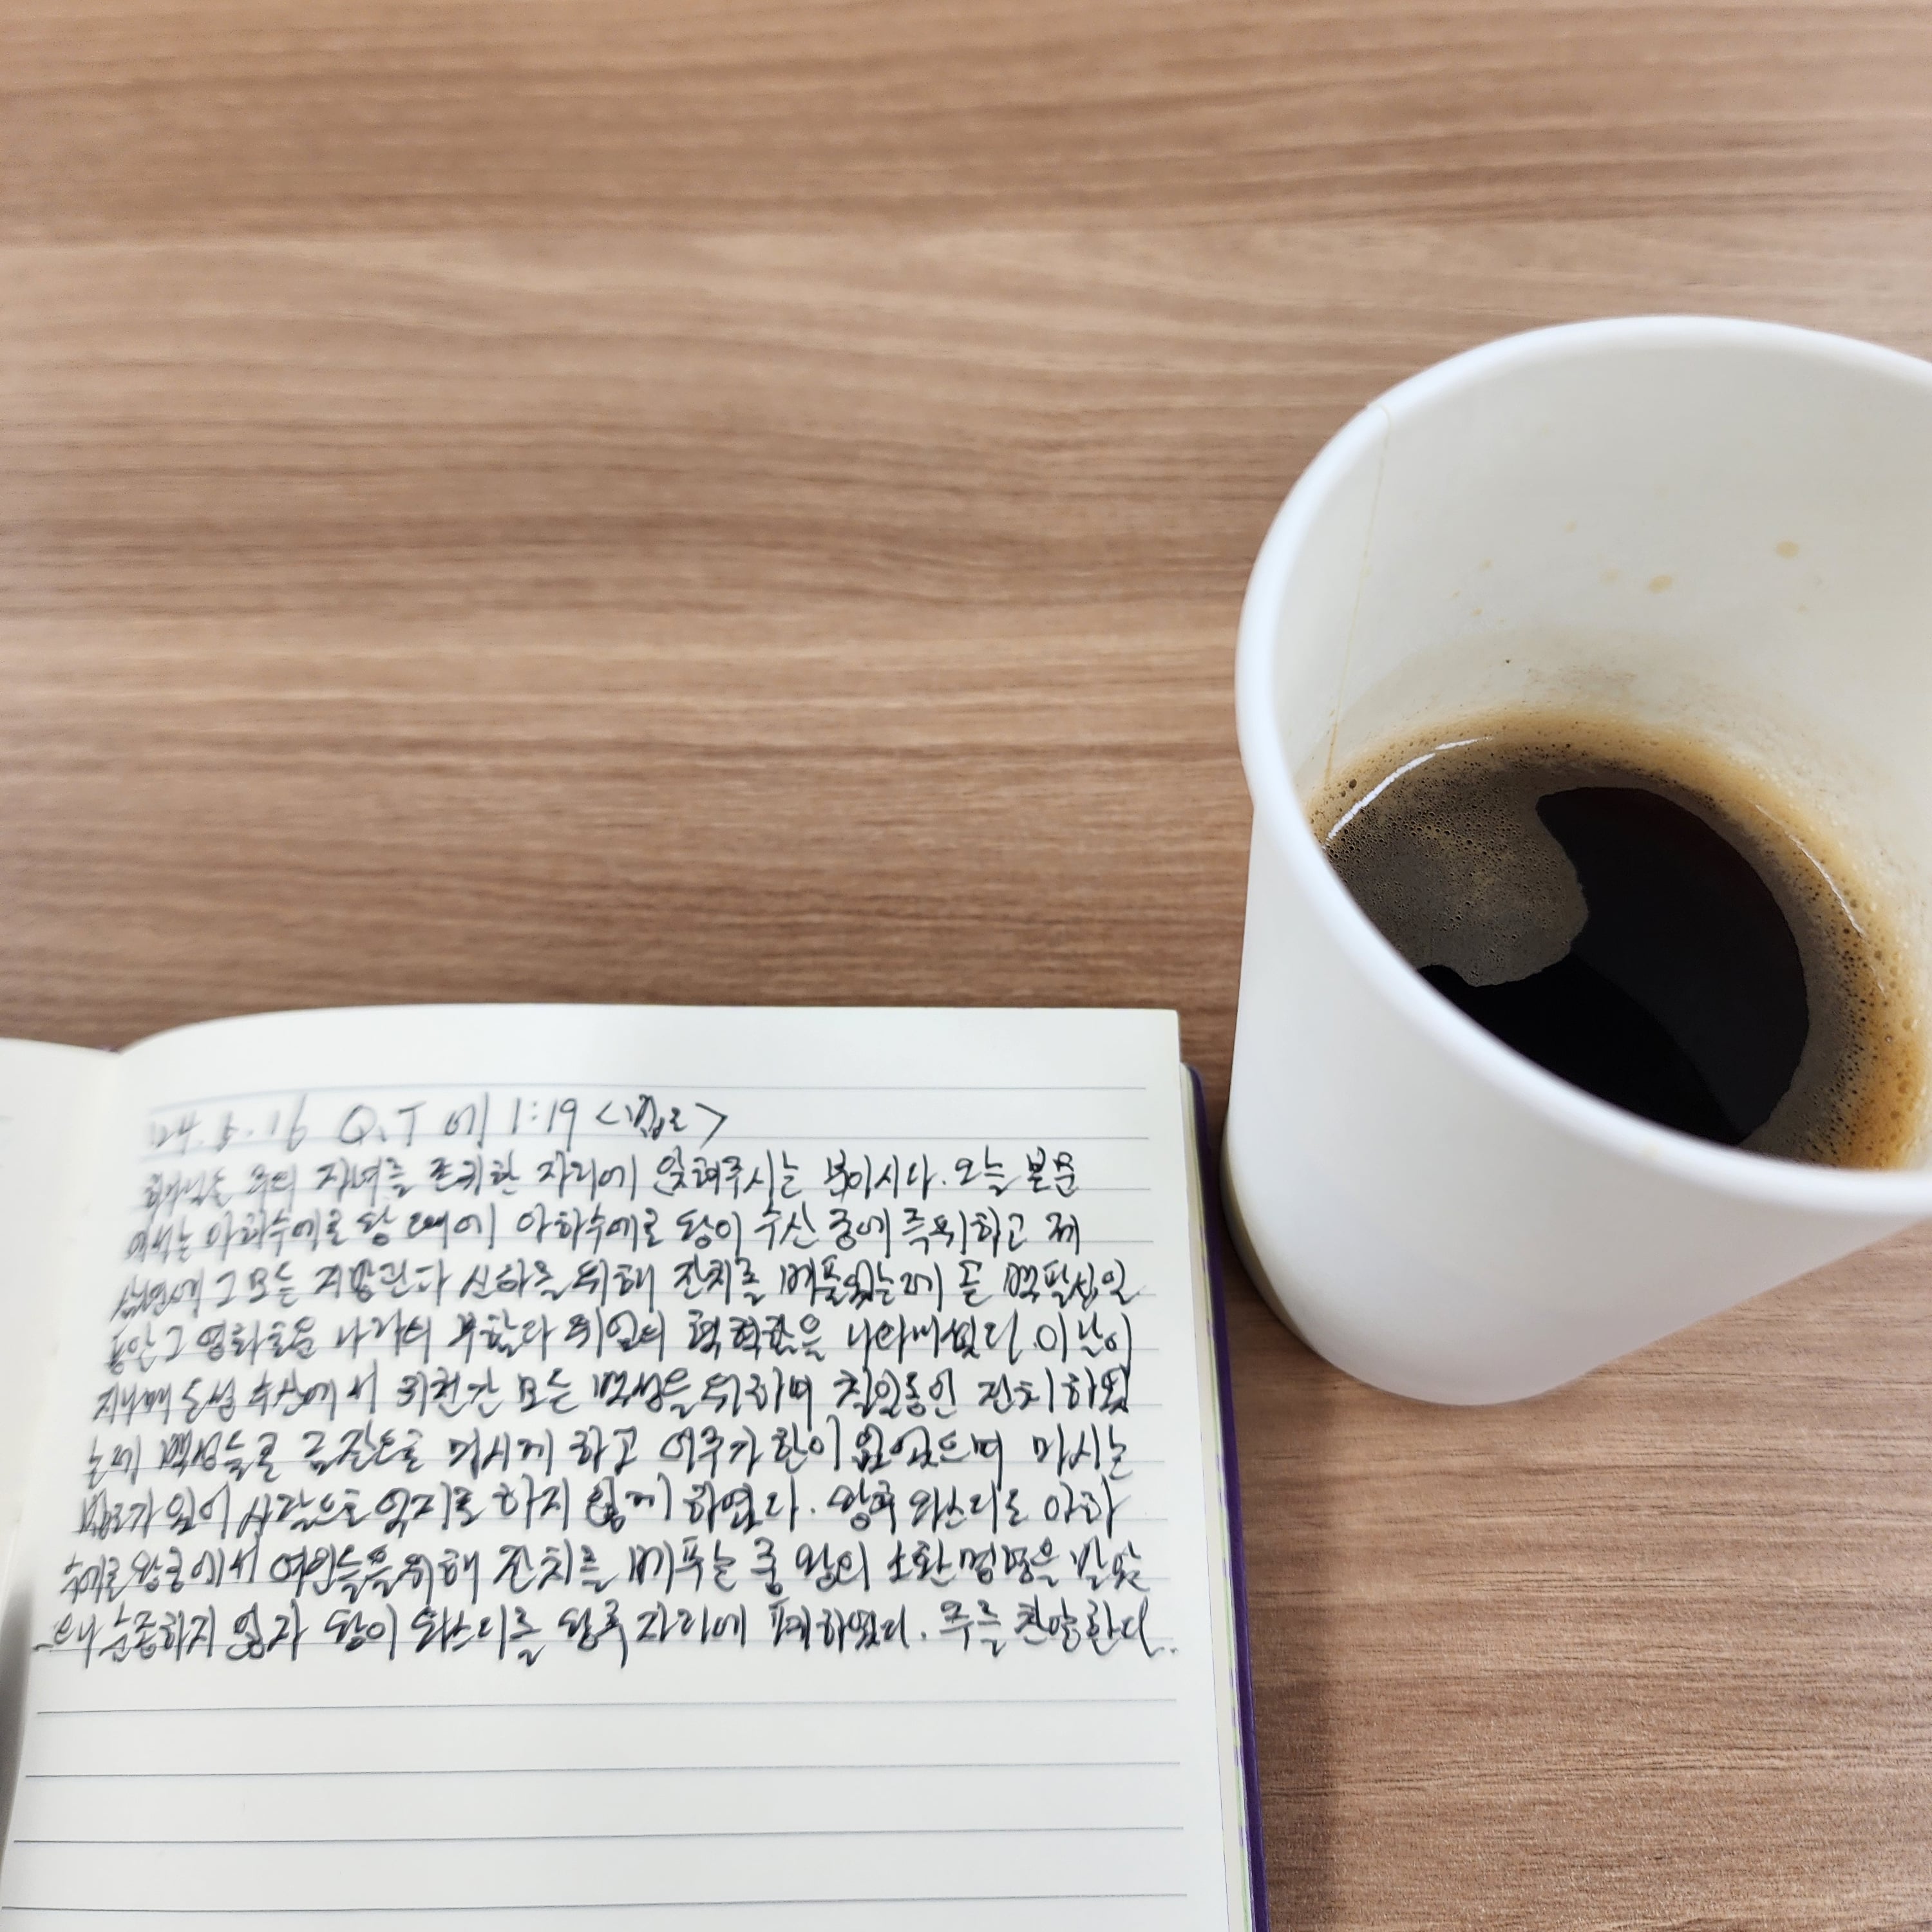 24. 5. 16 Q.T 에 1:19 <법로>
주의 자녀를 존귀한 자리에 앉혀주시는 분이시다. 오늘 본문
에서는 아하수에로 왕 때에 아하수에로 왕이 수산 궁에 즉위하고 제
삼년에 그 모든 지방관과 신하를 위해 잔치를 베풀었는데 곧 백팔십일
동안 그 영화로운 나라의 부함과 위엄의 혁혁함을 나타내셨다. 이날이
지내매 도성 수산에서 귀천간 모든 백성을 위하여 칠일동안 잔치하였
는데 백성들로 금잔으로 마시게 하고 어주가 한이 없었으며 마시는
법도가 있어 사람으로 억지로 하지 않게 하였다. 왕후 와스디도 아하
수에로 왕궁에서 여인들을 위해 잔치를 베푸는 중 왕의 소환 명령을 받았
으나 순종하지 않자 왕이 와스디를 왕후 자리에 폐하였다. 주를 찬양한다.